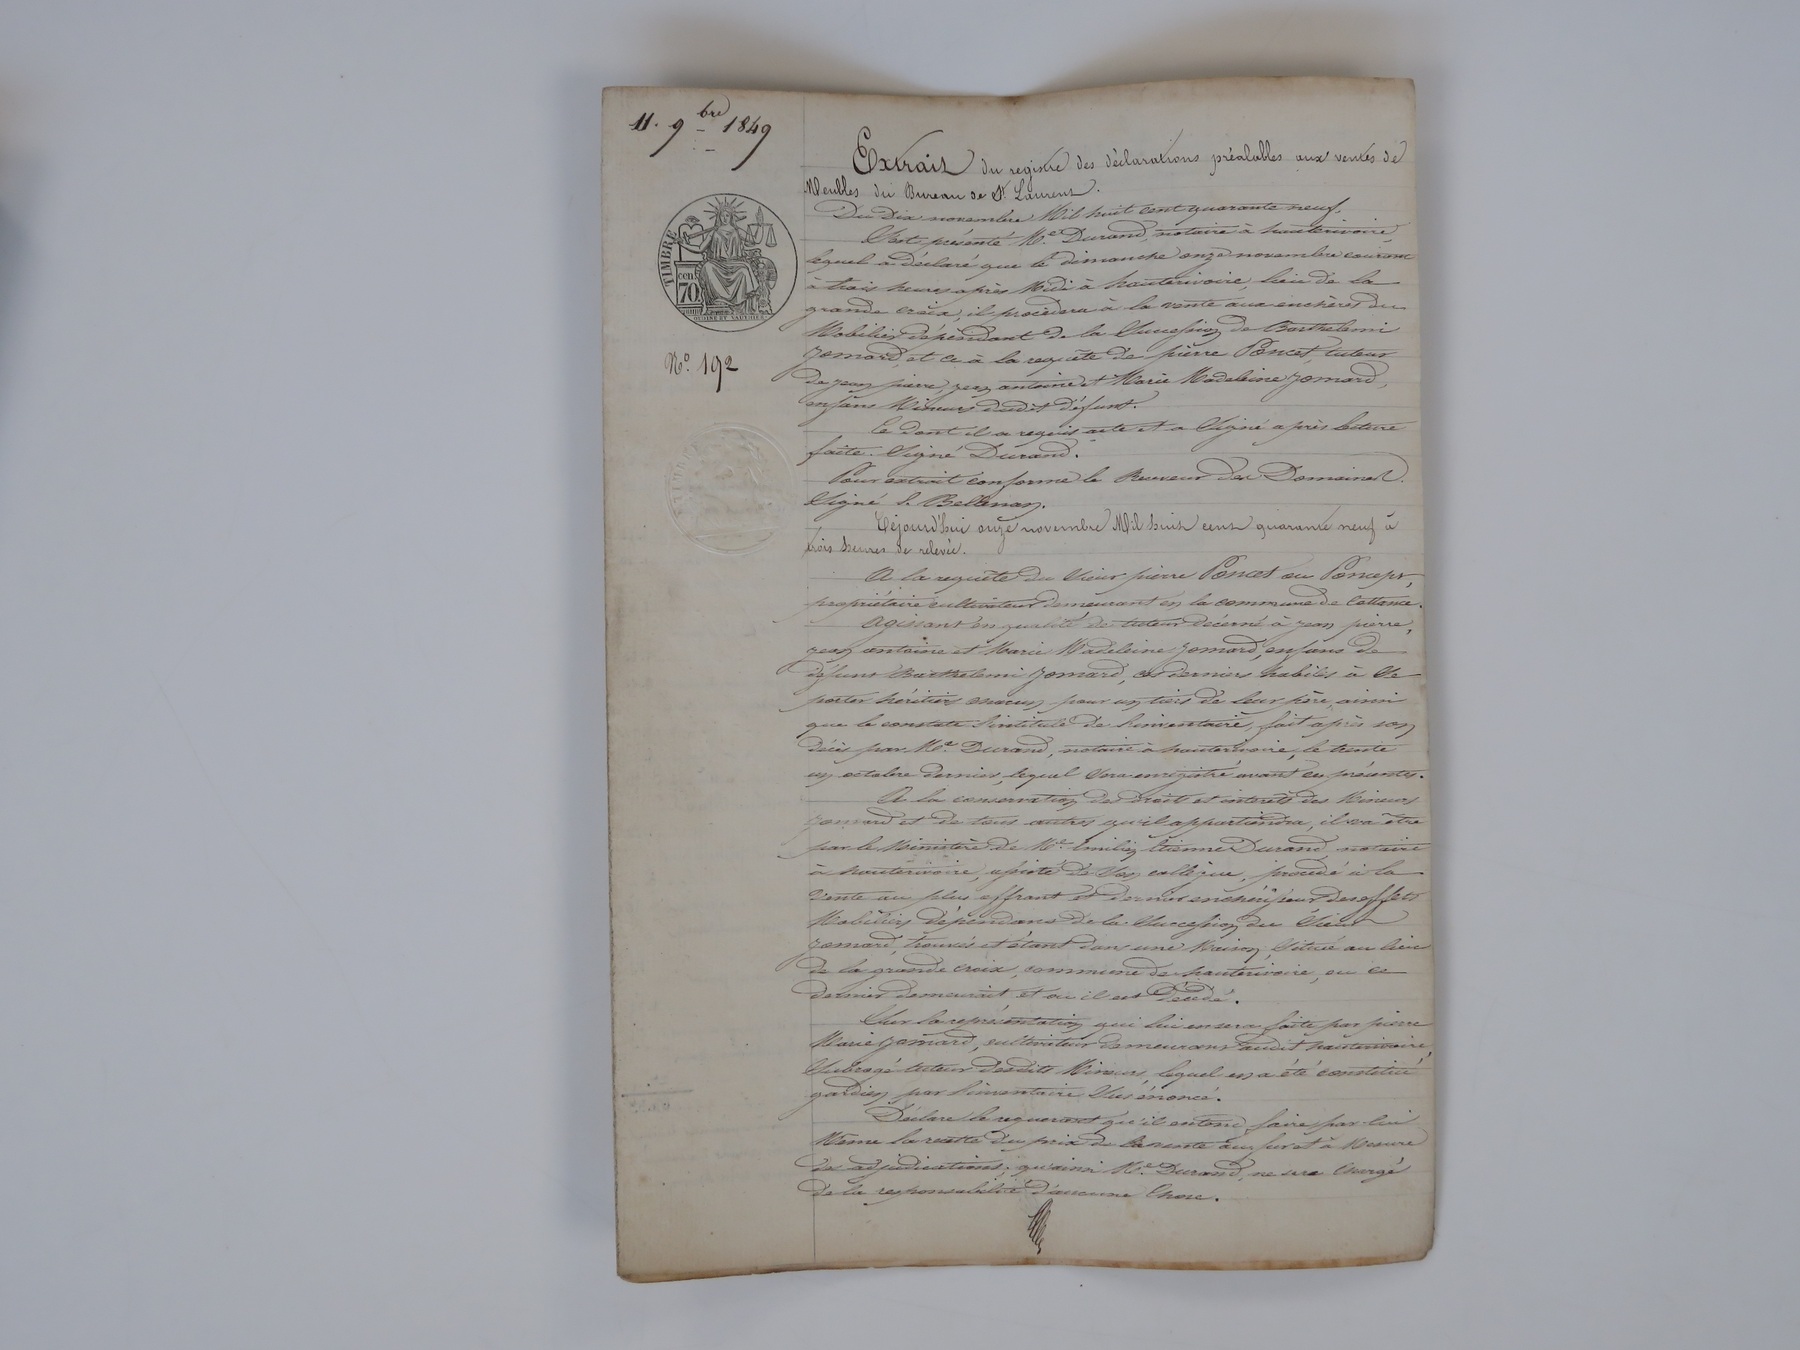 11. 9bre 1849
TIMBRE
cen.
70
N° 192
Extrait du registre des déclarations préalables aux ventes de
Meubles du Bureau de St. Laurent.
Du Dix novembre Mil huit cent quarante neuf,
S'est présenté Me. Durand, notaire à hauterivoire,
lequel a déclaré que le dimanche onze novembre courant
à trois heures après Midi à hauterivoire, lieu de la
grande croix, il procédera à la vente aux enchères du
Mobilier dépendant de la Succession de Barthelemi
Jomard, et ce à la requête de pierre Poncet, tuteur
de jean pierre, jean antoine et Marie Madeleine Jomard,
enfans Mineurs dudit défunt.
Ce dont il a requis acte et a Signé après lecture
faite. Signé Durand.
Pour extrait conforme le Receveur des Domaines.
Signé
Cejourd'hui onze novembre Mil huit cent quarante neuf à
trois heures de relevée.
A la requête du Sieur pierre Poncet ou Poncept,
propriétaire cultivateur demeurant en la commune de
Agissant en qualité de tuteur décerné à jean pierre,
jean antoine et Marie Madeleine Jomard, enfans de
défunt Barthelemi Jomard, ces derniers habiles à Se
porter héritiers chacun pour un tiers de leur père, ainsi
que le constate l'intitulé de l'inventaire, fait après son
décès par Me. Durand, notaire à hauterivoire, le trente
un octobre dernier, lequel Sera enregistré avant ces présentes.
A la conservation des droits et intérêts des Mineurs
Jomard et de tous autres qu'il appartiendra, il va être
par le Ministère de Me. Emilien Etienne Durand notaire
à hauterivoire, assisté de Son collègue, procédé à la
Vente au plus offrant et dernier enchérisseur des effets
Mobiliers dépendans de la Succession du Sieur
Jomard, trouvés et étant dans une Maison, Située au lieu
de la grande croix, commune de hauterivoire, ou ce
dernier demeurait et ou il est Décédé.
Sur la représentation qui lui en sera faite par pierre
Marie Jomard, cultivateur demeurant audit hauterivoire,
Subrogé tuteur desdits Mineurs, lequel en a été constitué
gardien par l'inventaire Susénoncé.
Déclare le requerant qu'il entend faire par lui
Même la recette du prix de la vente au fur et à Mesure
des adjudications; qu'ainsi Me. Durand, ne sera Chargé
de la responsabilité d'aucune Chose.